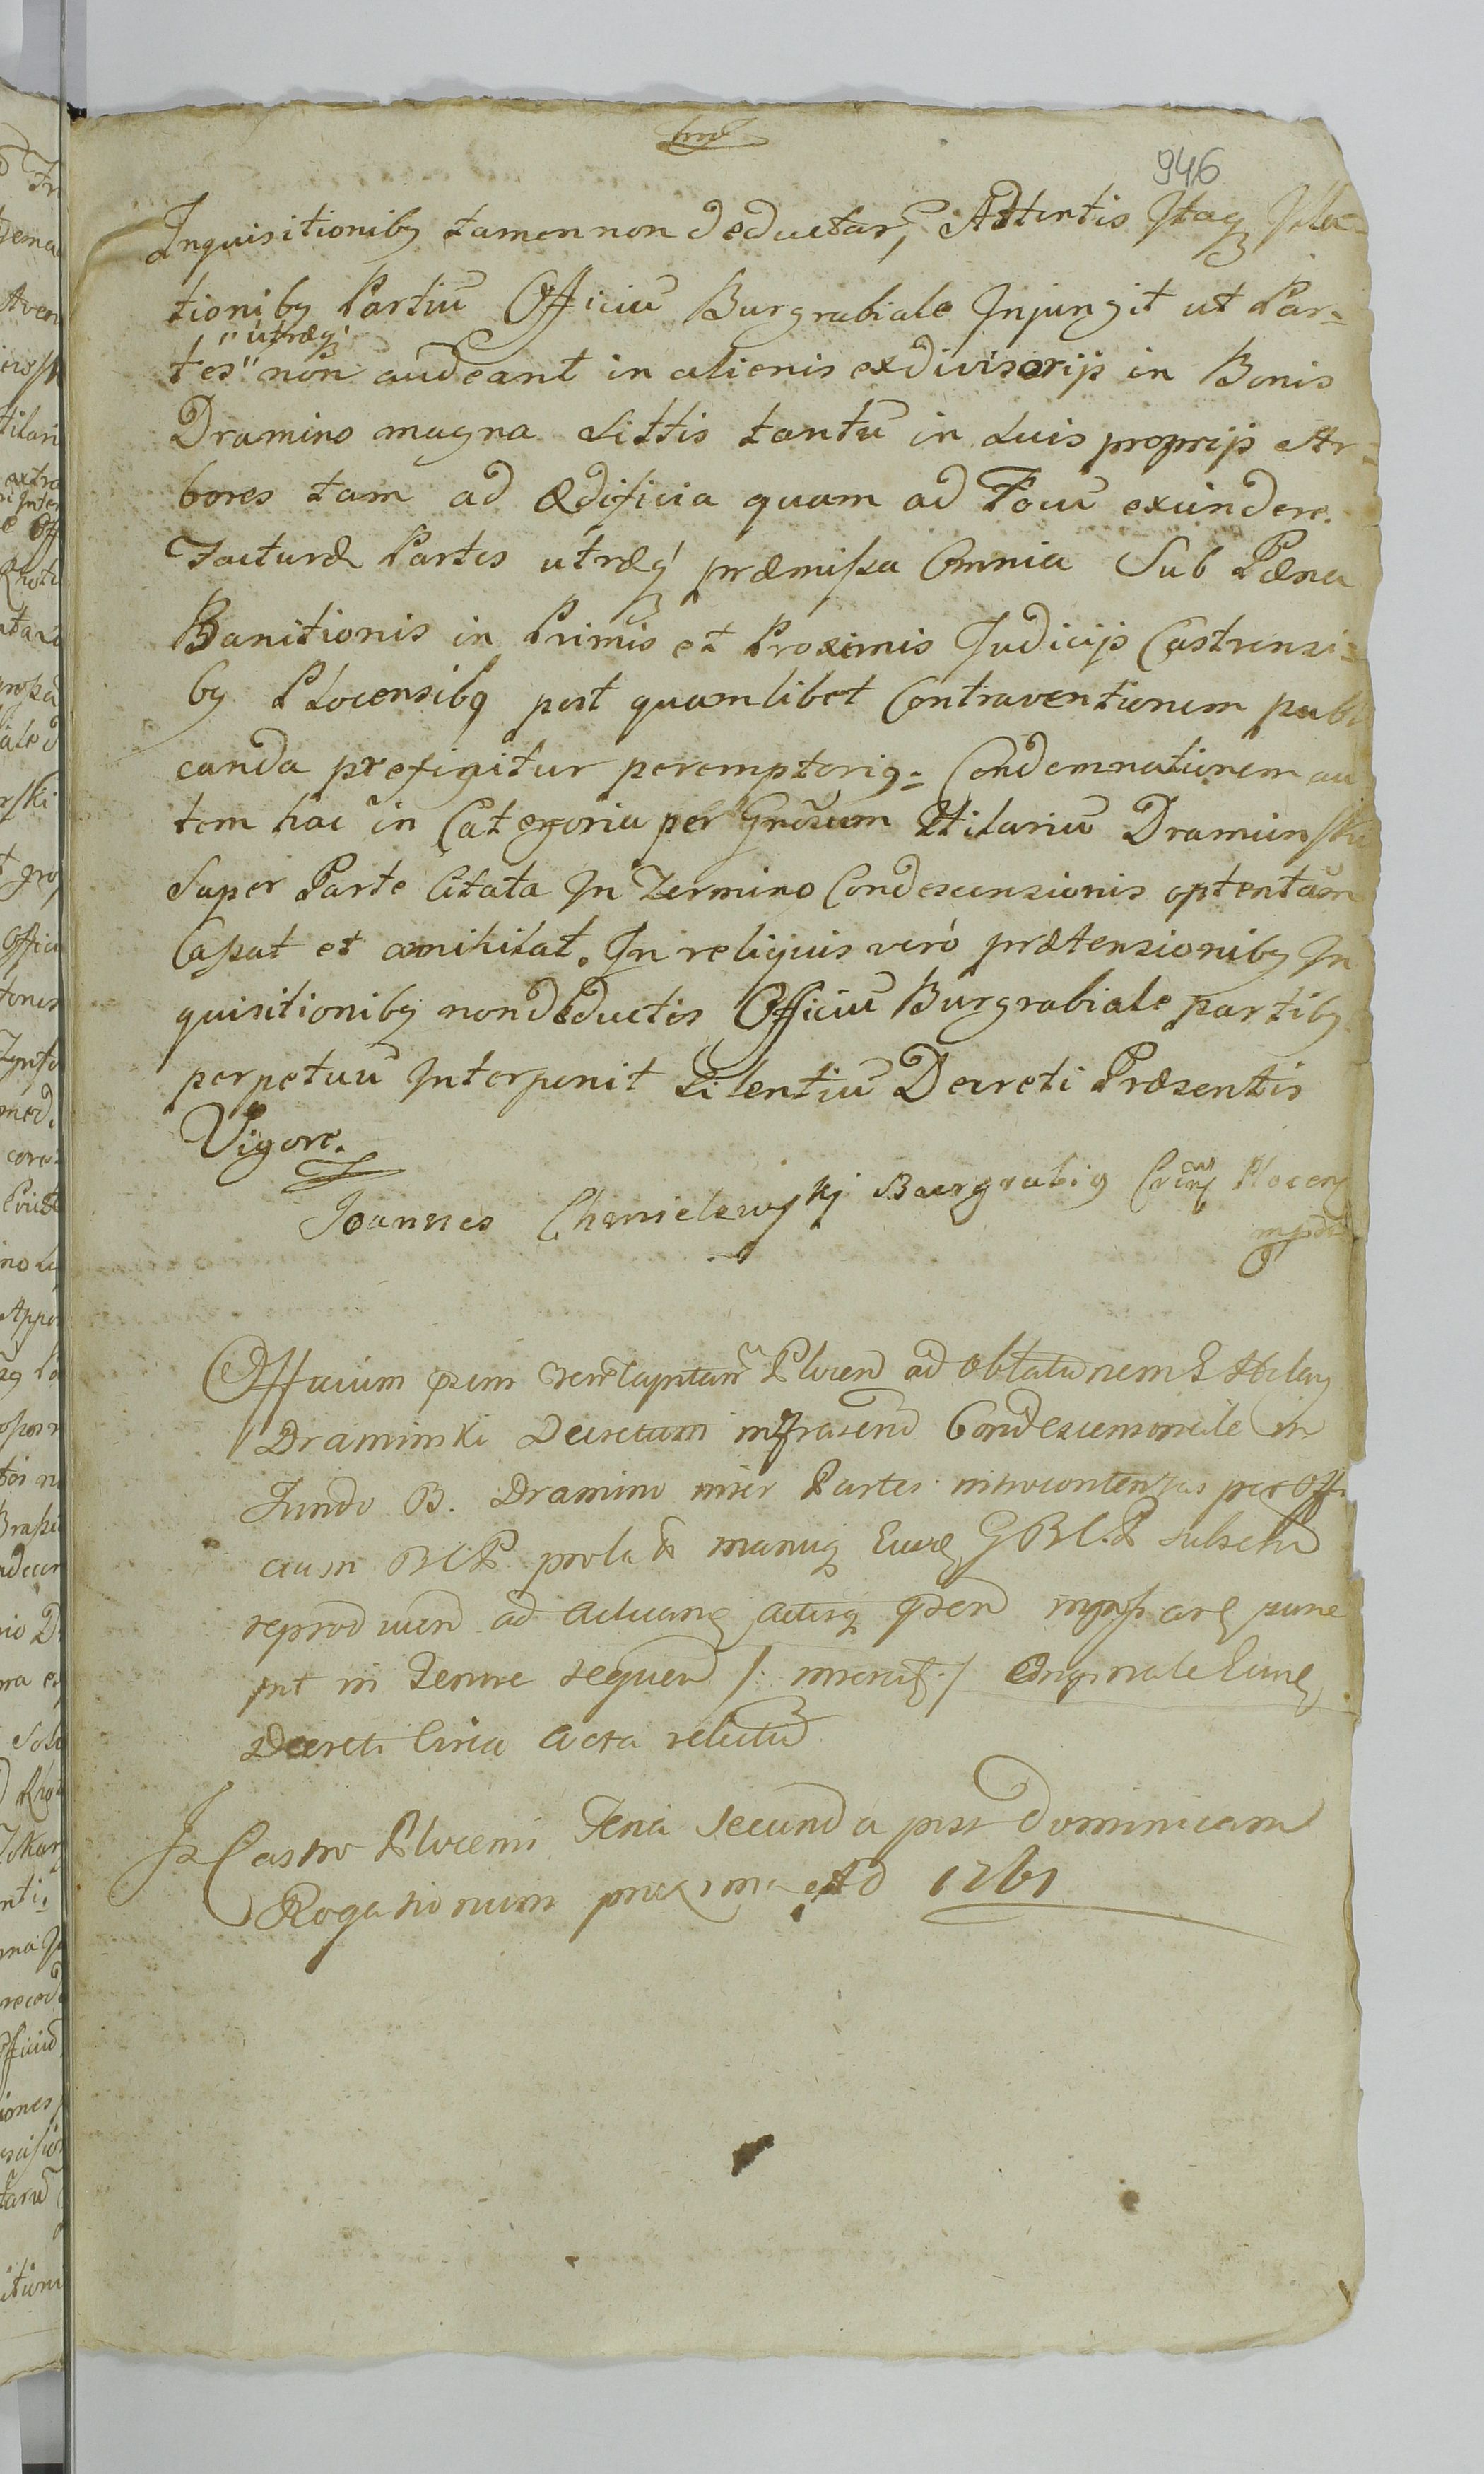 946
Inquisitioniby tamen non deductas, Attentis Itaq Illa-
tioniby Partiū Officiū Burgrabiale Injungit ut Par=
"utræq"
tes" non audeant in alienis exdivisorijs in Bonis
Dramino magna Sittis tantū in Suis proprijs Ar=
bores tam ad Ædificia quam ad Focū exindere.
Facturæ Partes utræq præmissa Omnia Sub Pæna
Banitionis in Primis et Proximis Judicijs Castrensi=
by Plocensibq post quamlibet Contraventionem publi
canda prefigitur peremptorie= Condemnationem au
tem hac in Categoria per Gnosum Hilariū Dramins
Super Parte Citata In Termino Condescensionis optentam
Cassat et annihilat. In reliquis verò prætensioniby In
quisitioniby non deductis Officiū Burgrabiale partiby
perpetuū Interponit Silentiū Decreti Præsentis
Vigore.
Joannes Chmielewskj Burgrabig Plocens
mp
Officium Plocen ad oblationem G Hilary
Draminski Decretum infrascrip Condescensionale in
Fundo B. Dramino inter Partes introcontentas per Offi
cium BCP prolat manuq Eius GBC.P subscrip
reprod ad Acticand Actisq
in Tenore sequen Originale Eius
Decreti Circa Acta relictū
In Castro Plocensi Feria Secunda post Dominicam
Rogationum proxima AD 1761